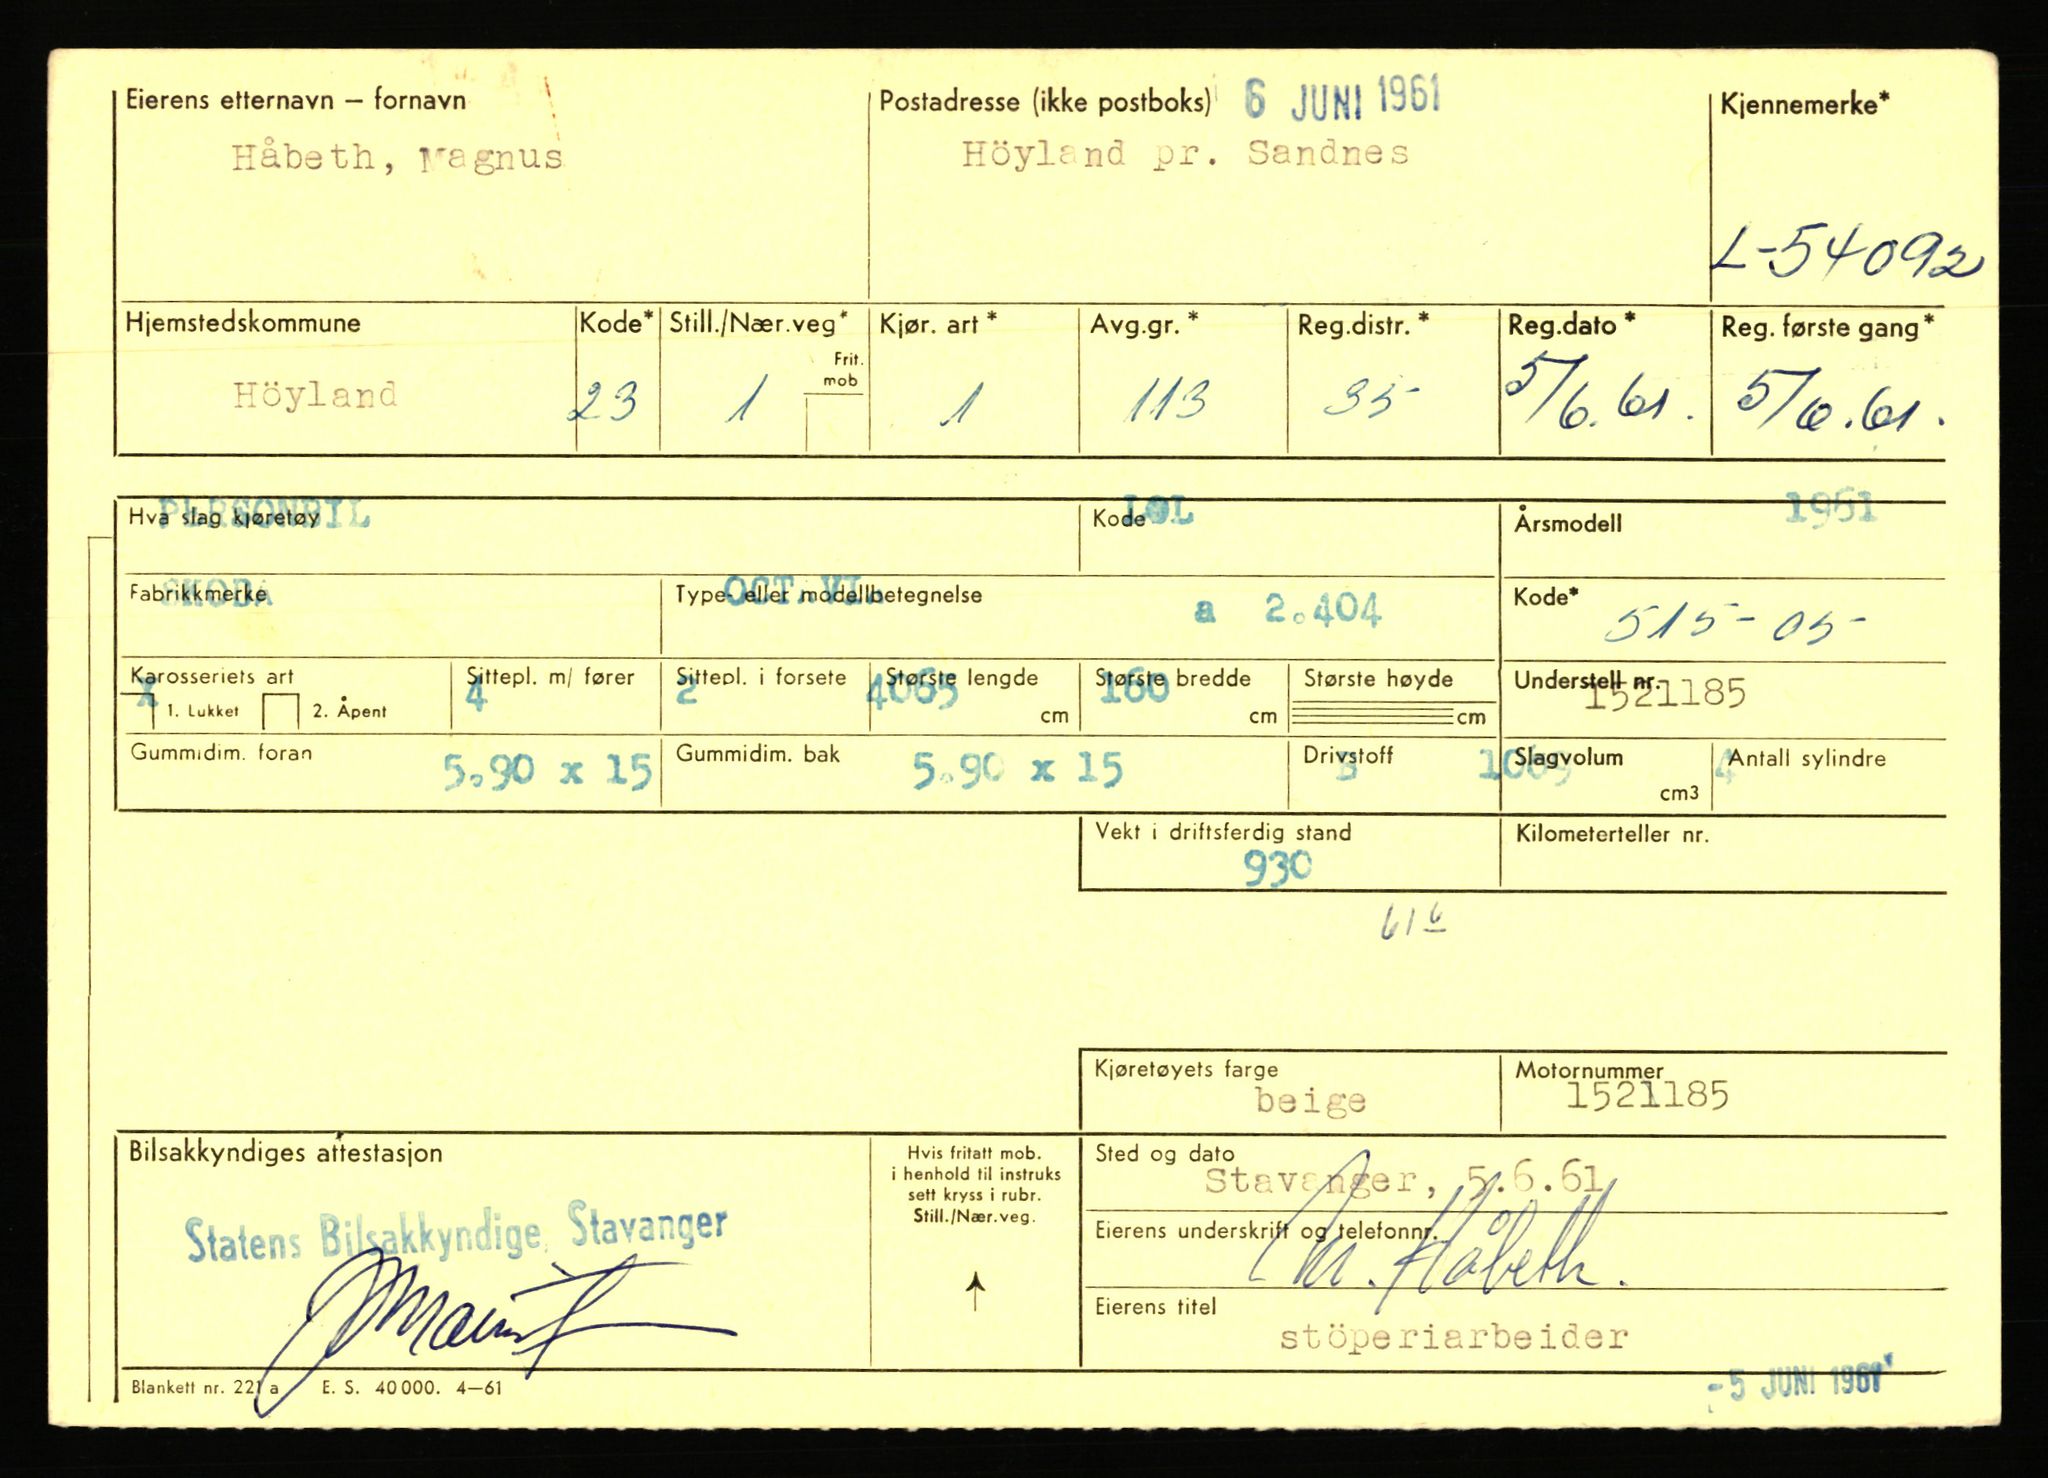 Eierens etternavn – fornavn
Håbeth, Magnus
Postadresse (ikke postboks) 6 JUNI 1961
Höyland pr. Sandnes
Kjennemerke*
L-54092
Hjemstedskommune
Höyland
Kode*
23
Still./Nær.veg*
1
Frit.
mob
Kjør. art *
1
Avg.gr. *
113
Reg.distr. *
35
Reg.dato *
5/6.61.
Reg. første gang *
5/6.61.
Hva slag kjøretøy
PERSONBIL
Kode
LOL
Årsmodell
1961
Fabrikkmerke
SKODA
Type- eller modellbetegnelse
OCTAVIA
a 2.404
Kode*
515-05-
Karosseriets art
x
1. Lukket 2. Åpent
Sittepl. m/ fører
4
Sittepl. i forsete
2
Største lengde
4065
cm
Største bredde
160
cm
Største høyde
cm
Understell nr.
1521185
Gummidim. foran
5.90 x 15
Gummidim. bak
5.90 x 15
Drivstoff
B
Slagvolum
cm3
Antall sylindre
4
Vekt i driftsferdig stand
930
Kilometerteller nr.
61 6
Kjøretøyets farge
beige
Motornummer
1521185
Bilsakkyndiges attestasjon
Statens Bilsakkyndige, Stavanger
Hvis fritatt mob.
i henhold til instruks
sett kryss i rubr.
Still./Nær.veg.
Sted og dato
Stavanger, 5.6.61
Eierens underskrift og telefonnr.
M. Håbeth.
Eierens titel
stöperiarbeider
Blankett nr. 221 a E. S. 40 000. 4–61
- 5 JUNI 1961